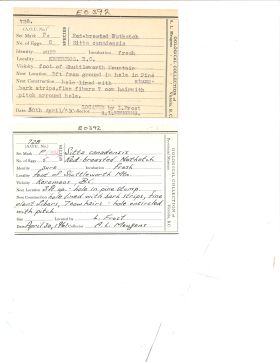 E0392
728.
(A.O.U. No.)
Set Mark Fe Red-breasted Nuthatch
No. of Eggs 6 Sitta canadensis
Identity sure Incubation fresh
Locality KEREMEOS, B.C.
Vicinity foot of Shuttleworth Mountain
Nest Location 3ft from ground in hole in Pine
Nest Construction hole lined with
bark strips, fine fibers & cow hair with
pitch around hole.
LOCATED by L. Frost
Date 30th April/
A. L. Meugens
OOLOGICAL COLLECTION of
Victoria, B.C.
E0392
728
(A.O.U. No.)
Set Mark Sitta canadensis
No. of Eggs 6 Red-breasted Nuthatch
Identity Sure Incubation Fresh
Locality foot of Shuttleworth Mtn.
Vicinity Keremeos B.C.
Nest Location 3ft. up - hole in pine stump.
Nest Construction hole lined with bark strips, fine
plant fibers, & cow hairs - hole encircled
with pitch
Located by L. Frost
Date April 30, Collector A. L. Meugens
OOLOGICAL COLLECTION of